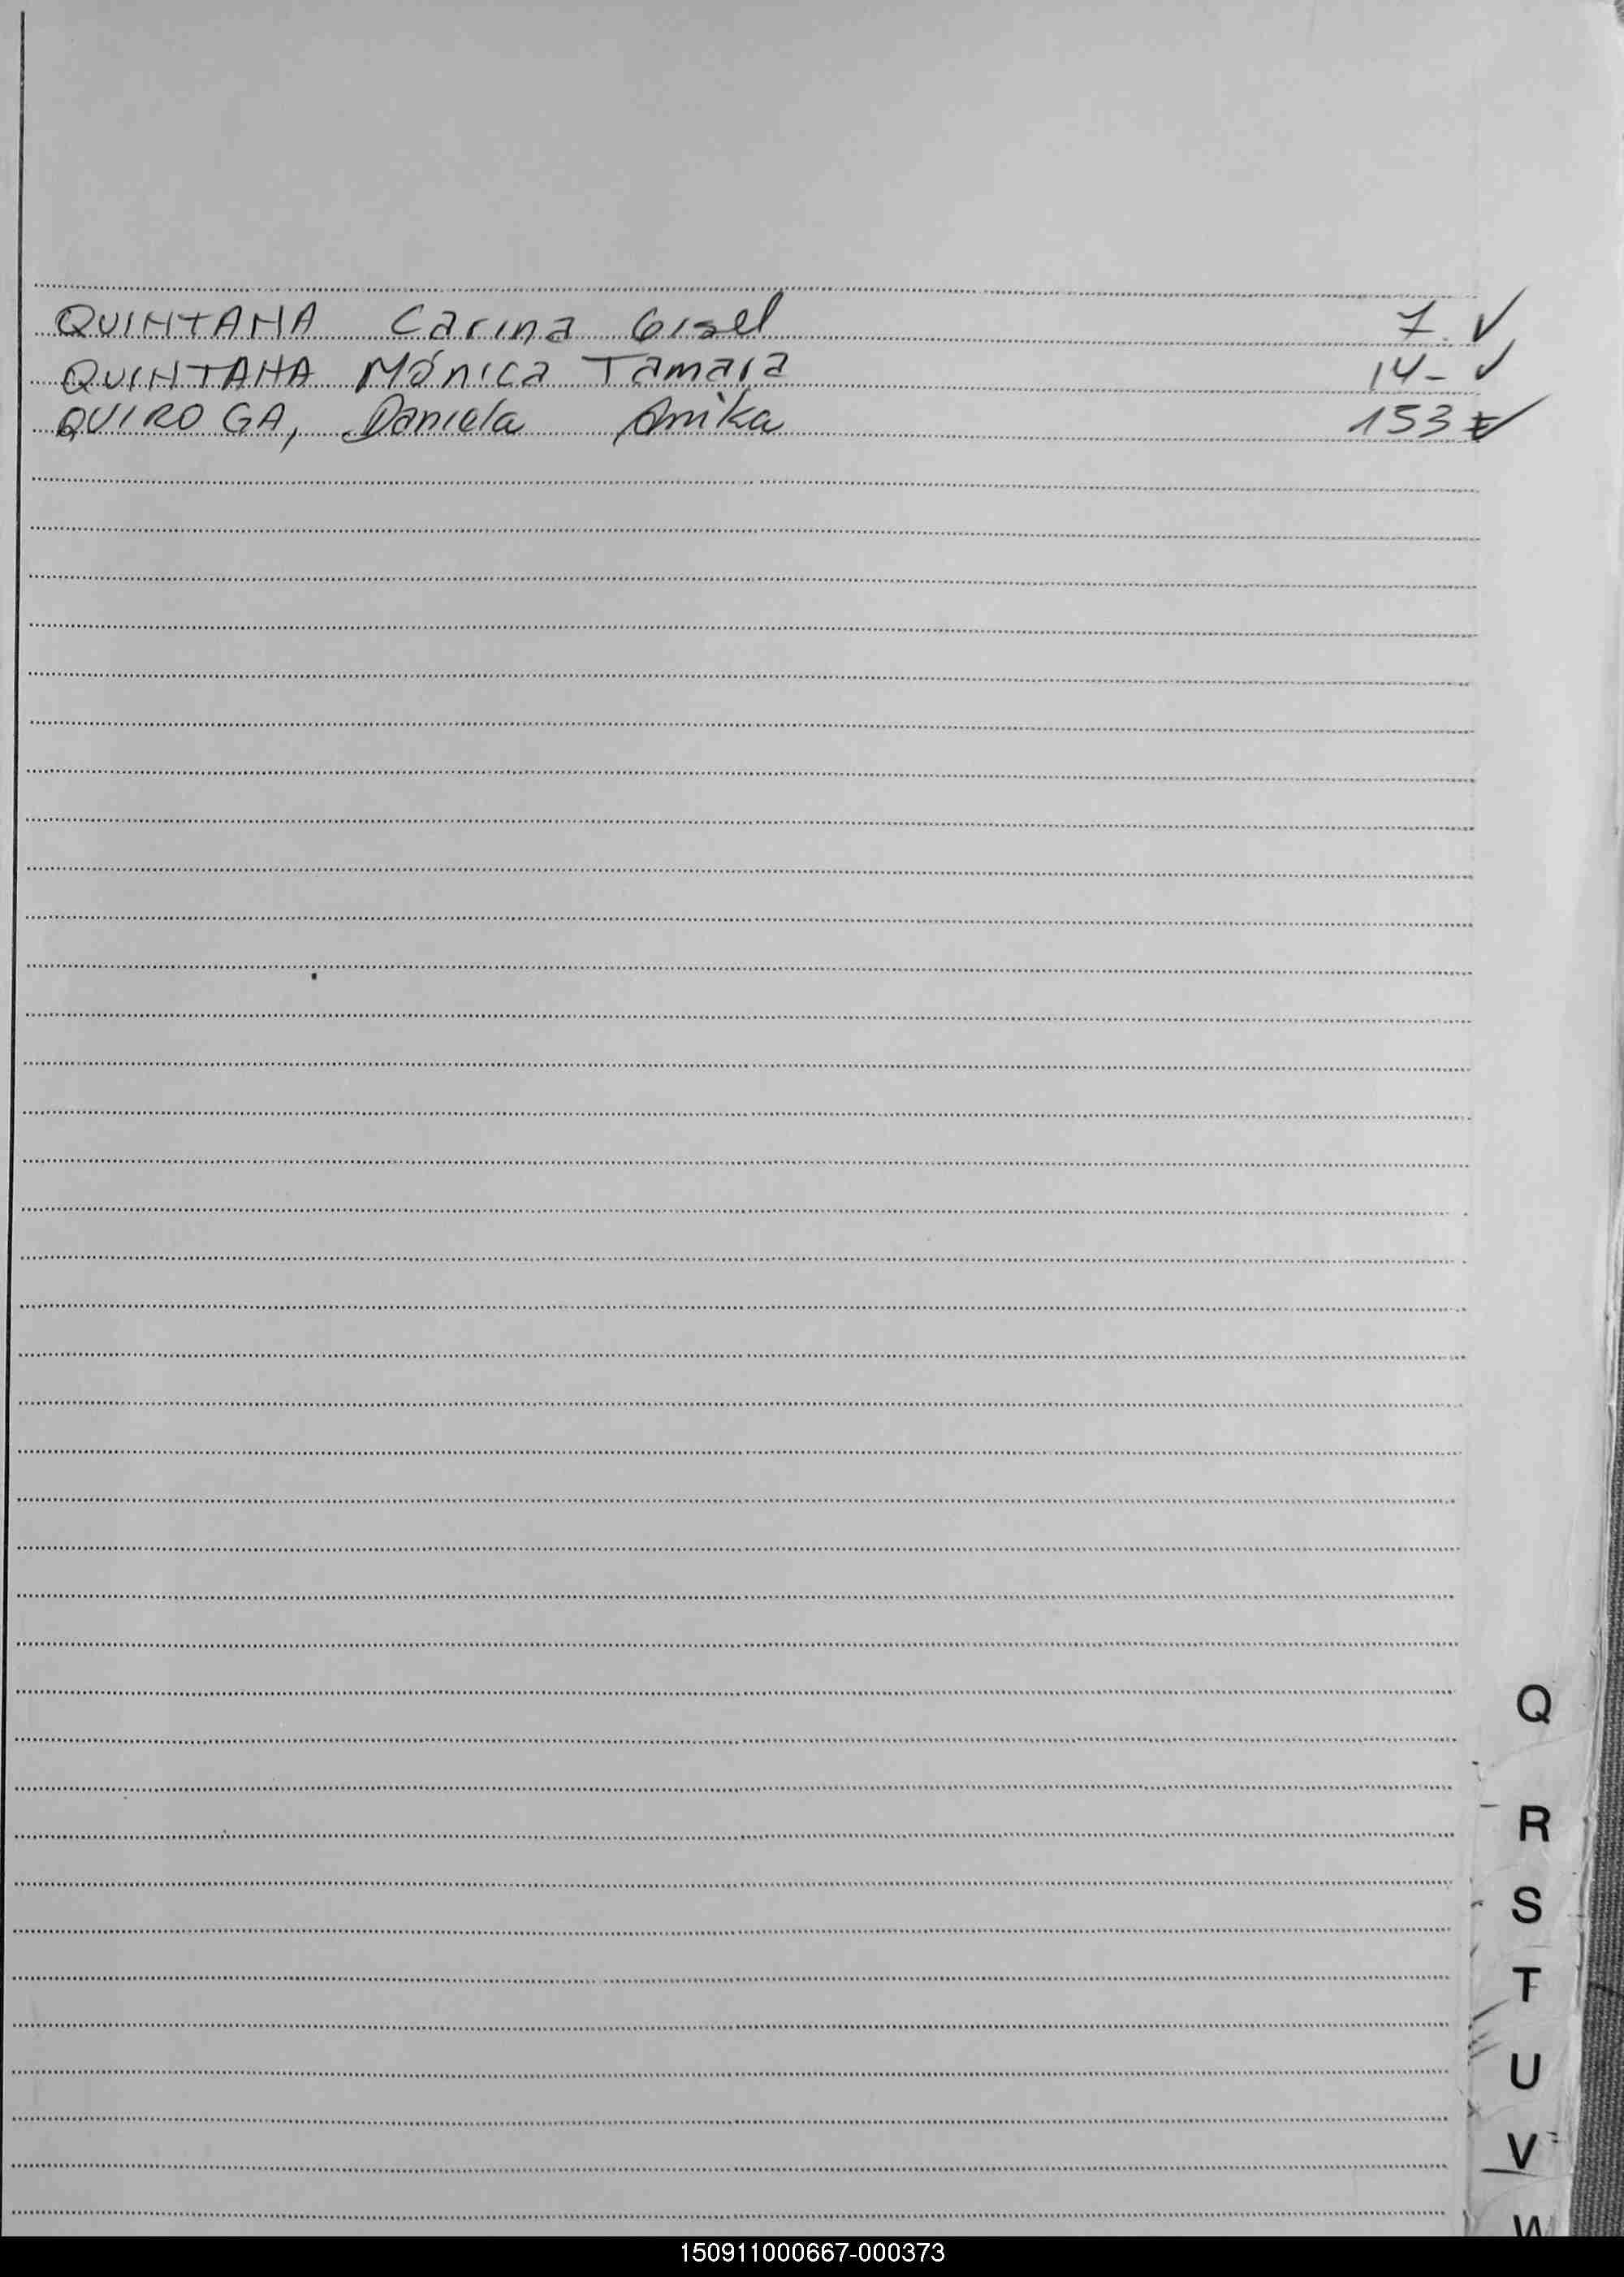 QUINTANA Carina Gisel 7. ✓
QUINTANA Mónica Tamara 14- ✓
QUIROGA, Daniela Anika 153 ✓
Q
R
S
T
U
V
W
150911000667-000373